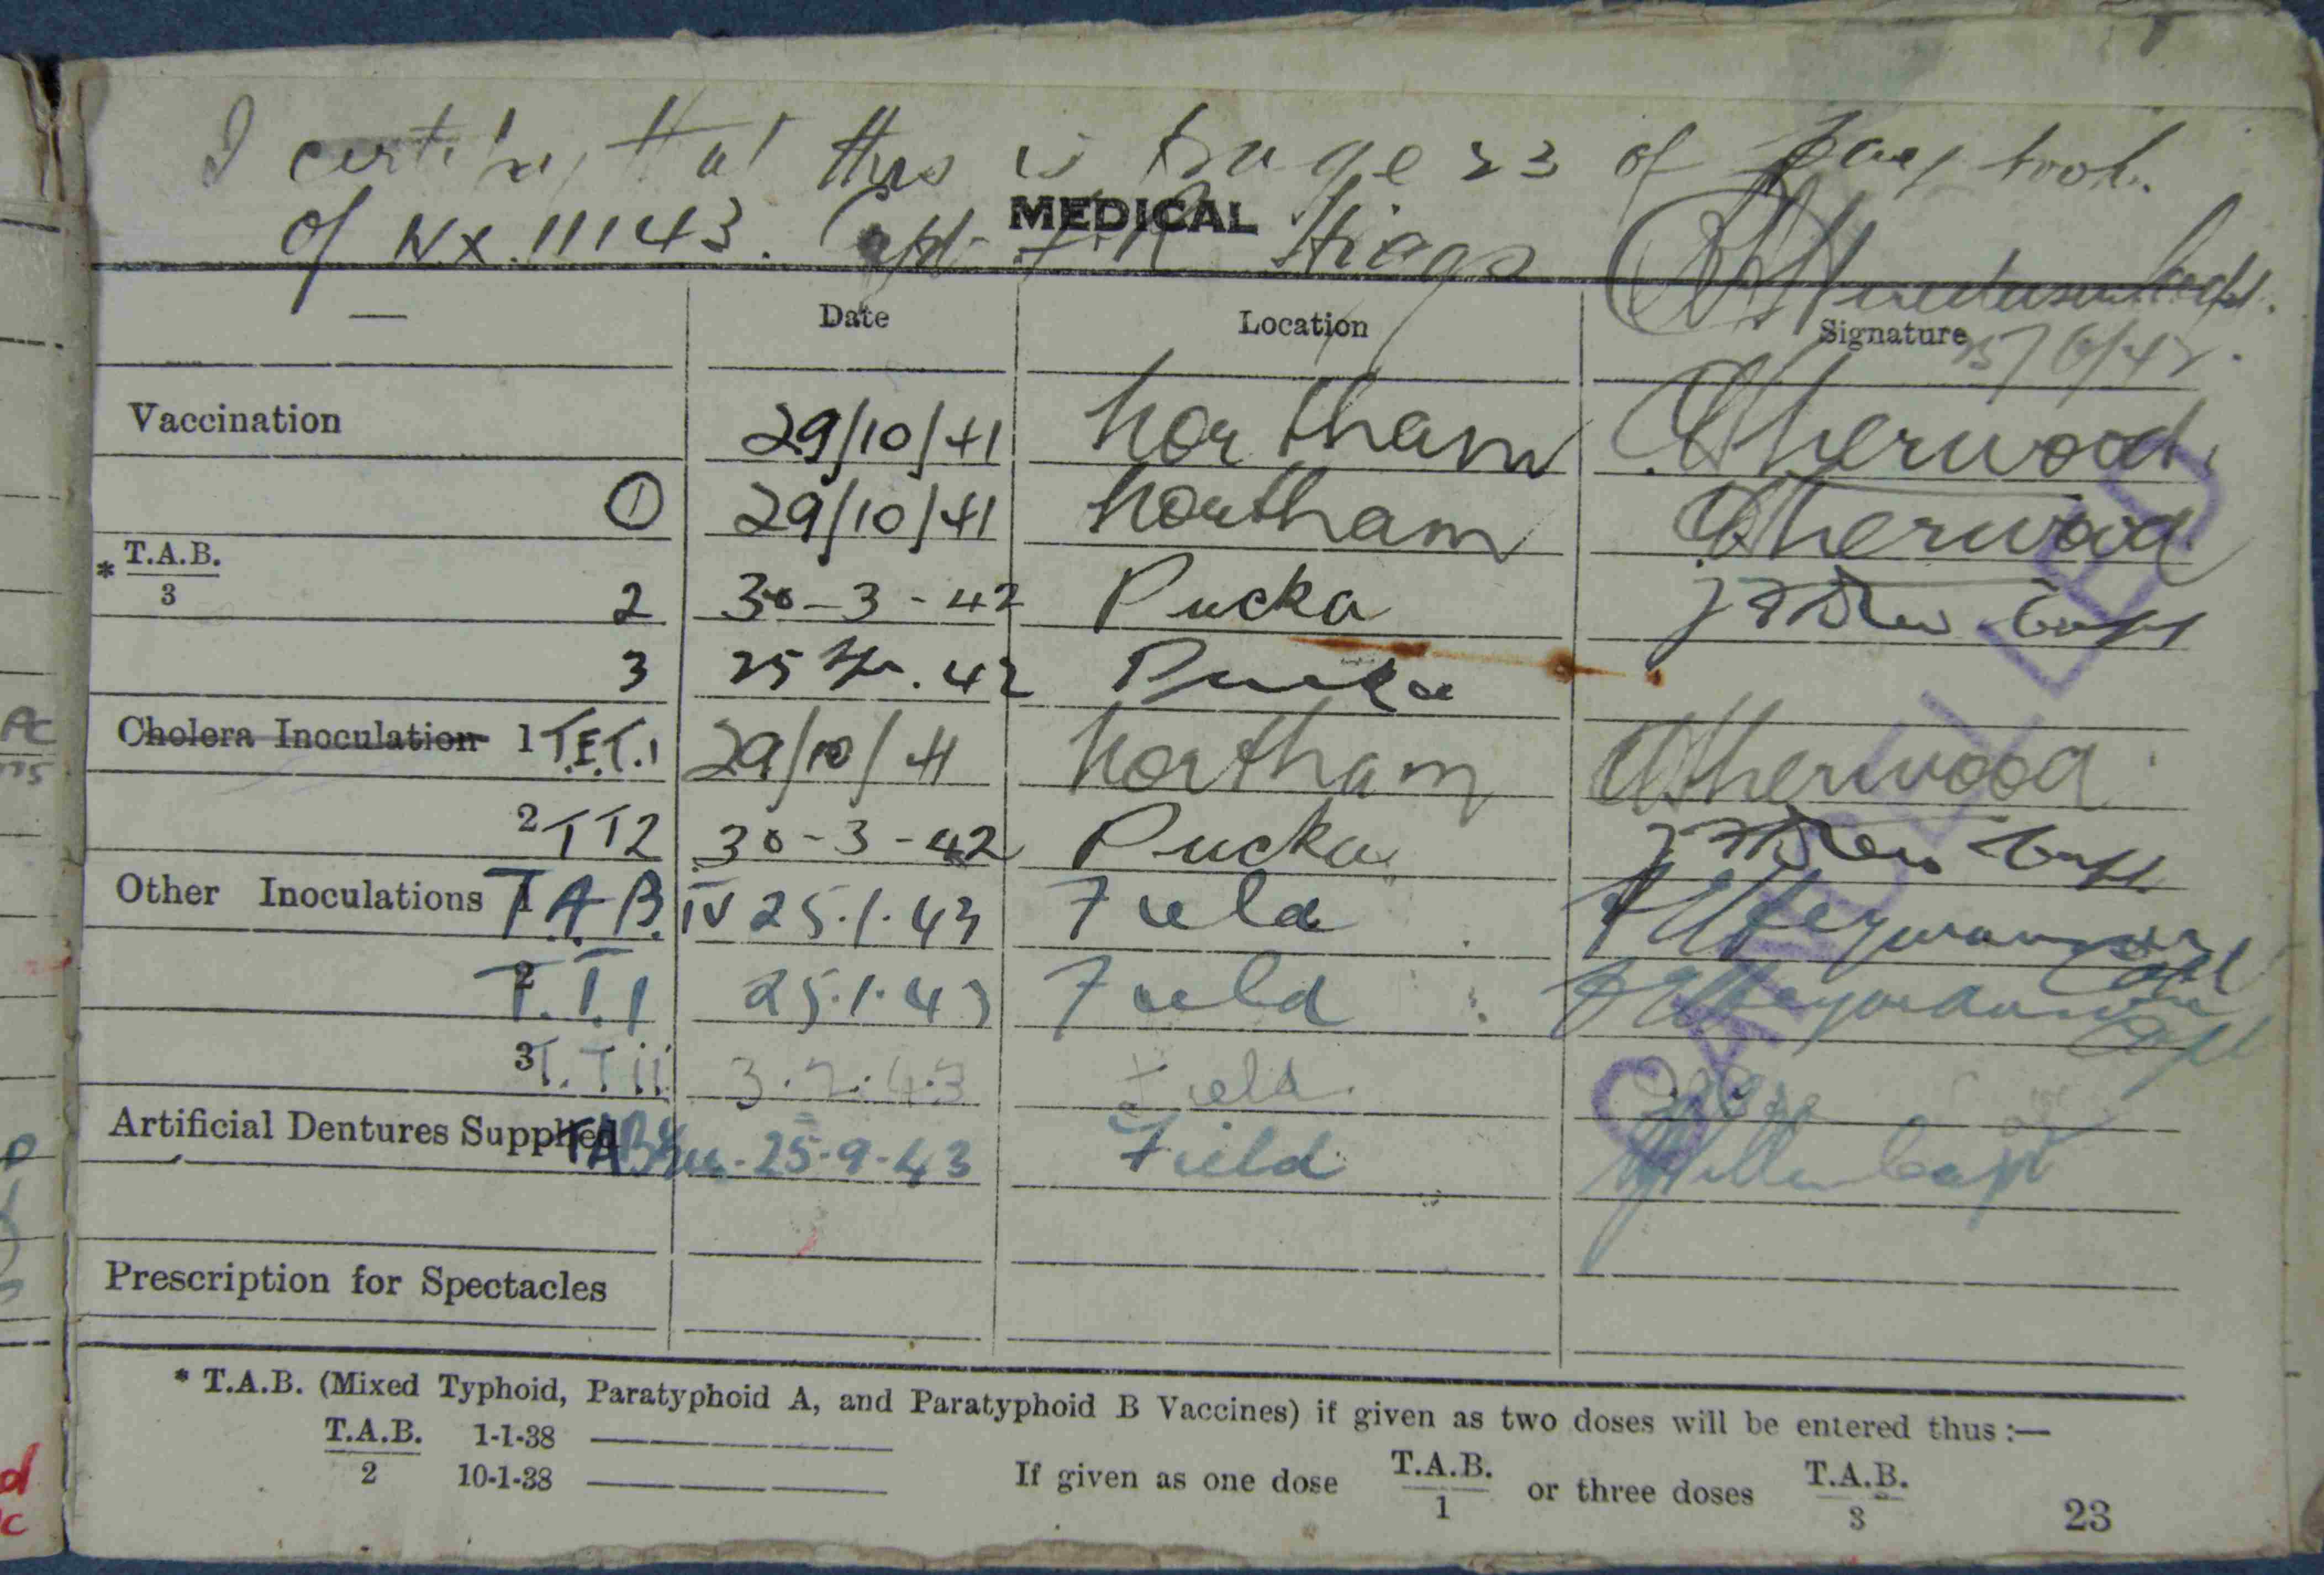 I certify that this is page 23 of Pay book
of NX.11143. Capt
MEDICAL
— Date Location Signature
Vaccination 29/10/41 Northam Sherwood
1 29/10/41 Northam Sherwood
* T.A.B. / 3
2 30-3-42 Pucka
3 25 42 Pucka
Cholera Inoculation 1 T.E.T.1 29/10/41 Northam Sherwood
2 TT2 30-3-42 Pucka
Other Inoculations 1 T.A.B. IV 25.1.43 Field Capt
2 T.T.1 25.1.43 Field Capt
3 T.T ii 3.2.43 Field
Artificial Dentures Supplied TAB 25-9-43 Field Capt
Prescription for Spectacles
CANCELLED
* T.A.B. (Mixed Typhoid, Paratyphoid A, and Paratyphoid B Vaccines) if given as two doses will be entered thus :—
T.A.B. / 2 1-1-38
10-1-38
If given as one dose T.A.B. / 1 or three doses T.A.B. / 3
23